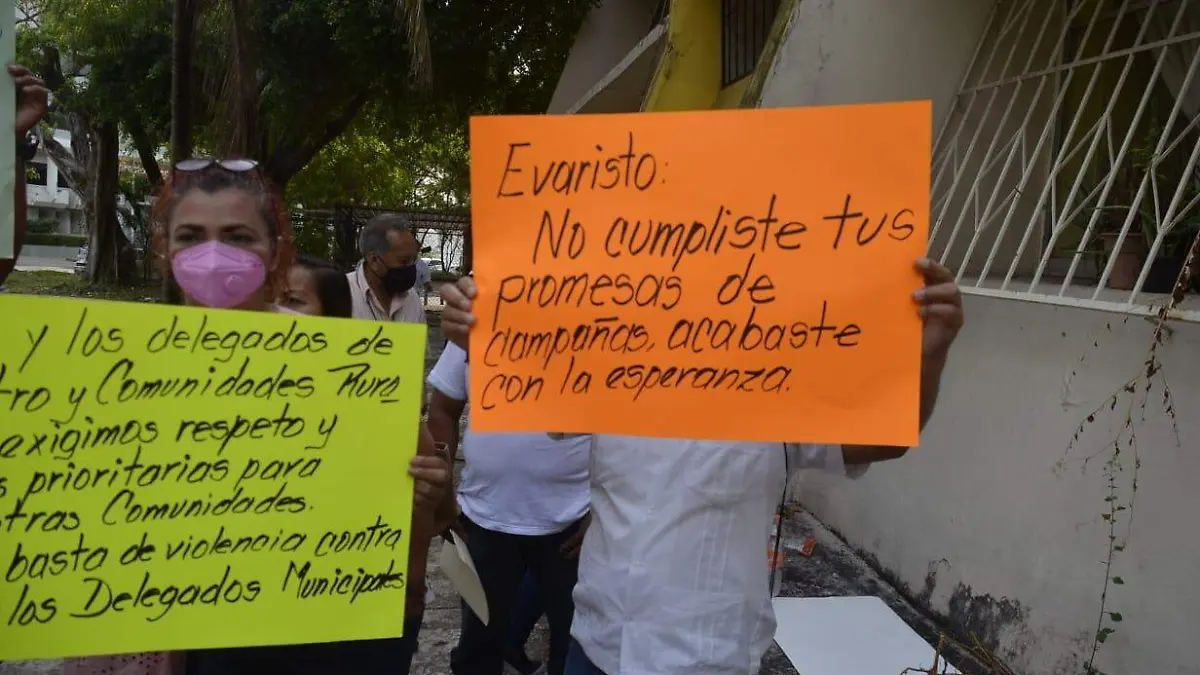 y los delegados de
tro y Comunidades Rura
exigimos respeto y
prioritarias para
tras Comunidades.
basta de violencia contra
los Delegados Municipales
Evaristo:
No cumpliste tus
promesas de
campañas, acabaste
con la esperanza.